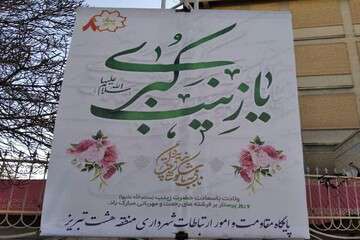 یا زینب کبری
سلام الله علیها
ولادت باسعادت حضرت زینب سلام الله علیها
و روز پرستار بر فرشته های رحمت و مهربانی مبارک باد.
پایگاه مقاومت و امور ارتباطات شهرداری منطقه هشت تبریز